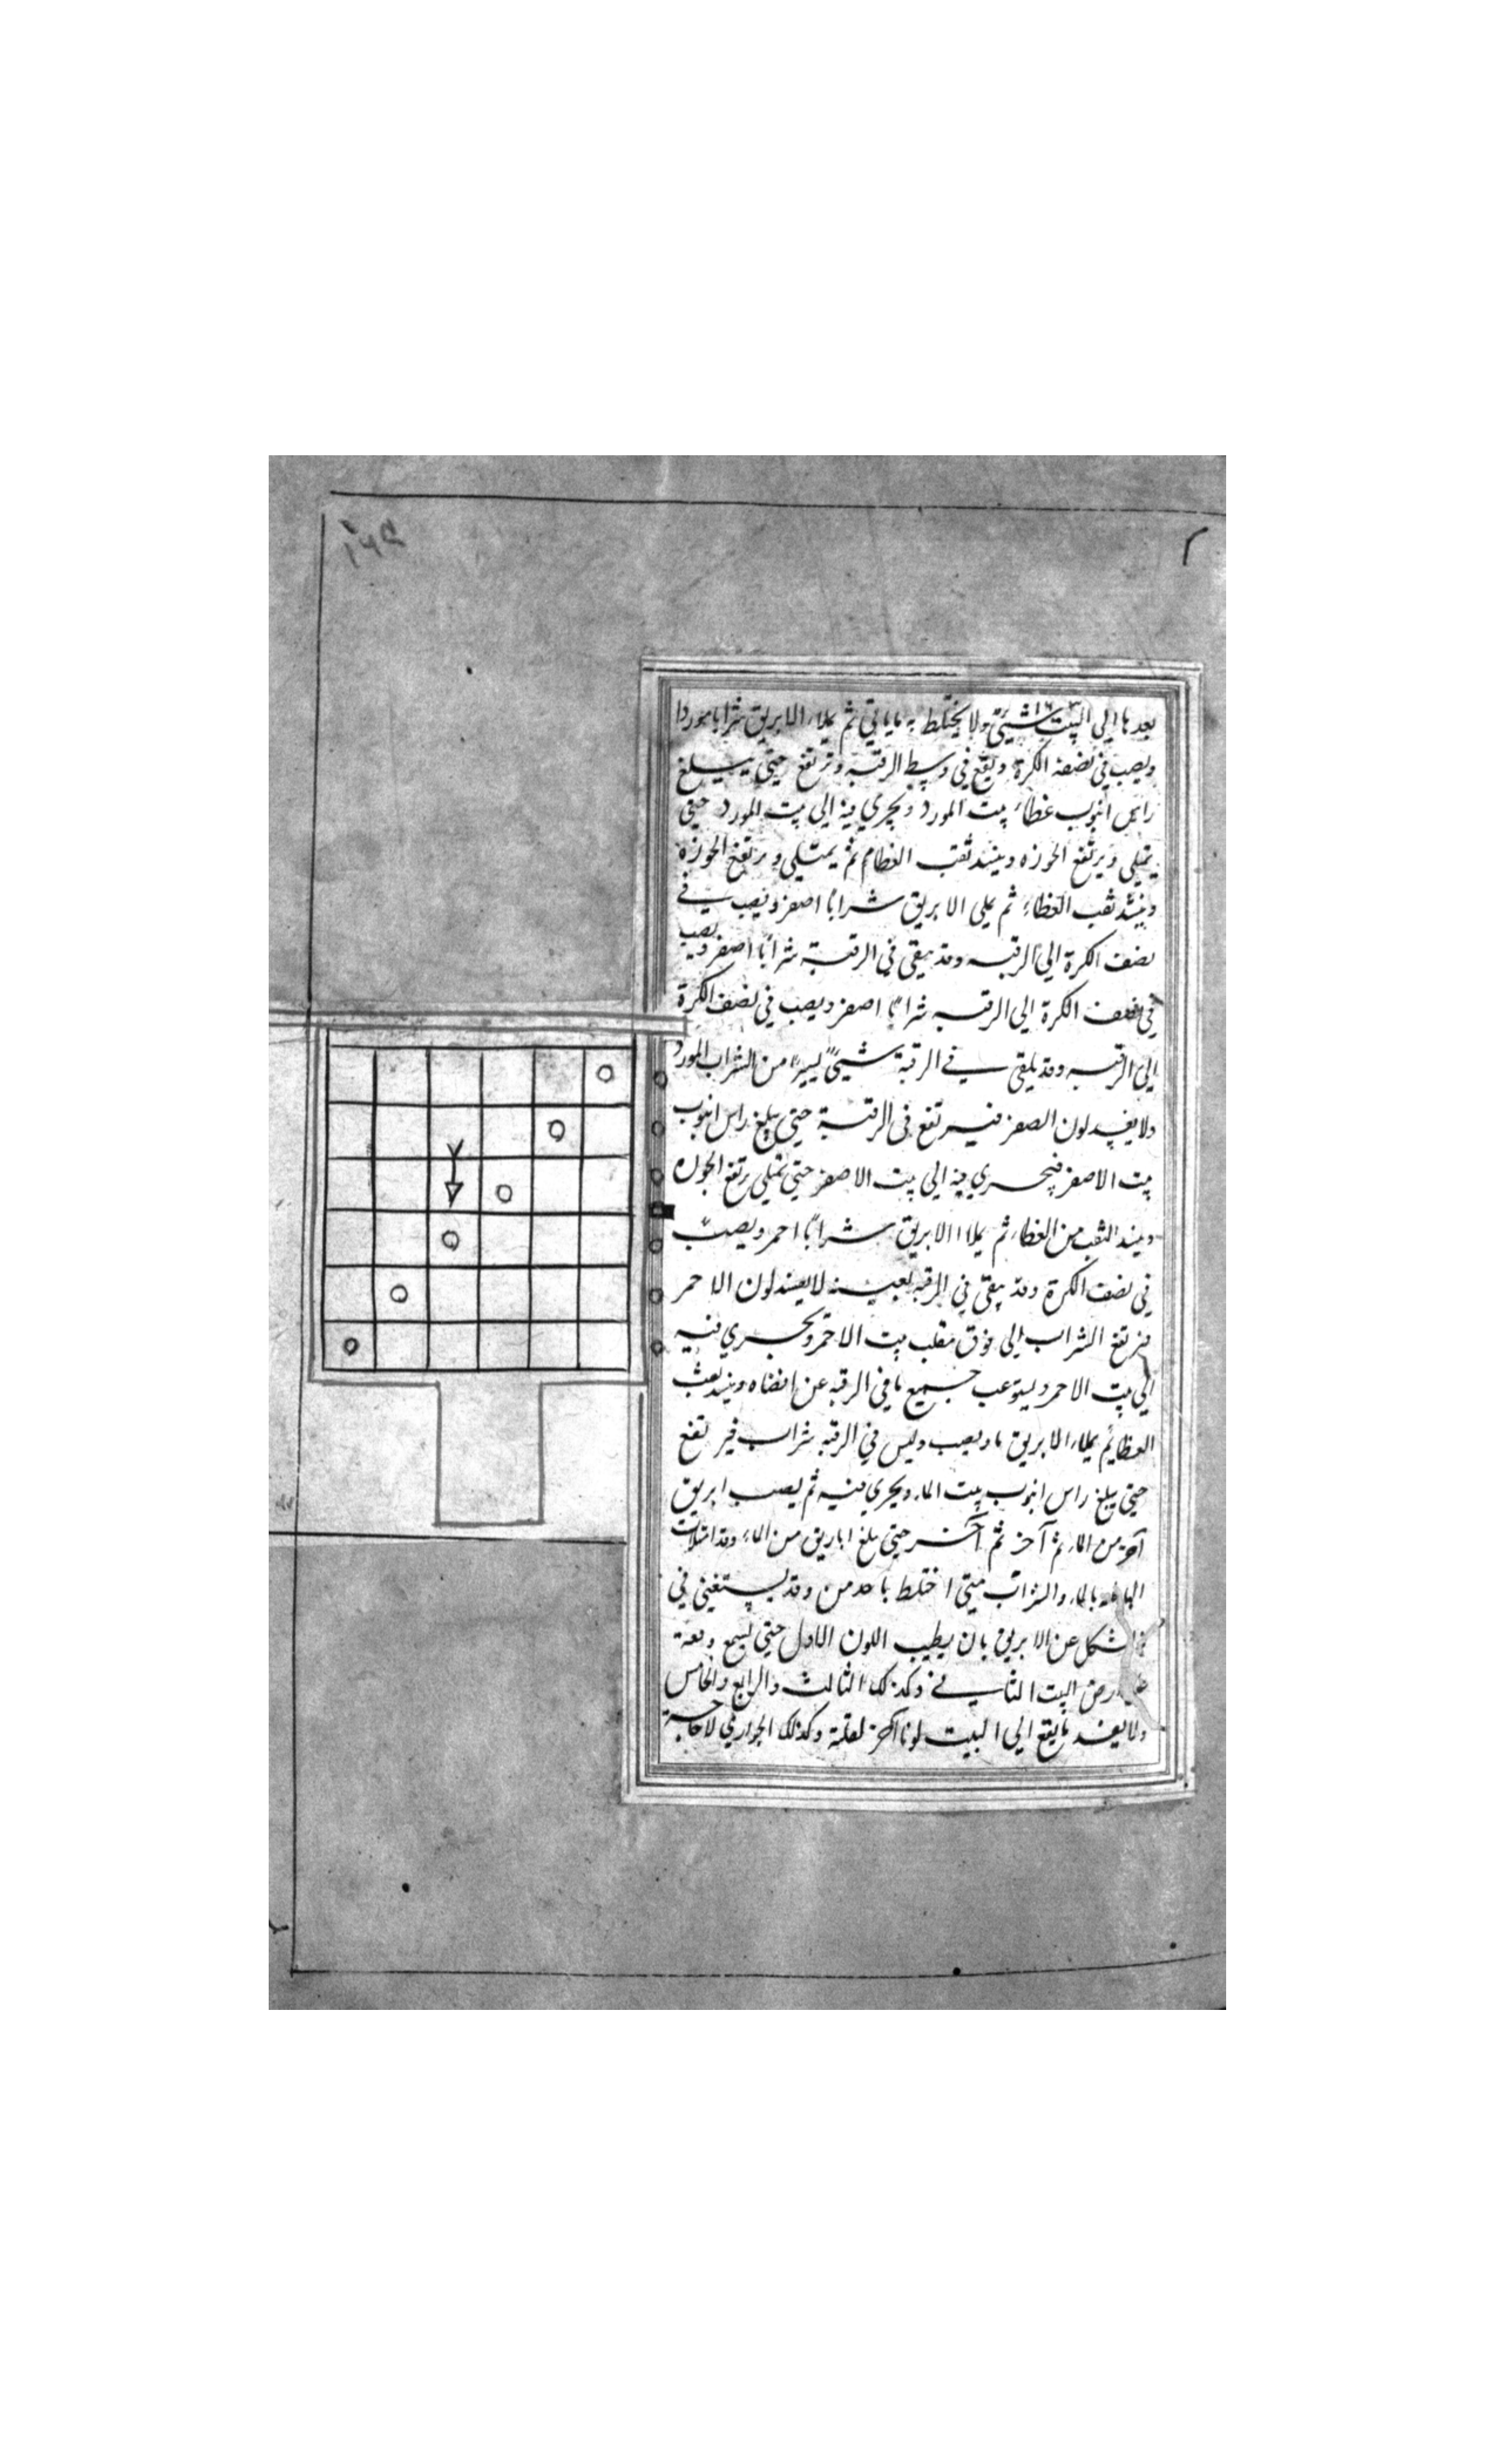 بعدها الي البيت شيئ ولا يختلط به ماياتي ثم يملاء الابريق شرابا موردا
ويصب في نصفه الكرة ويقع في وسط الرقبه وترتفع حتي يبلغ
راس انبوب غطاء بيت المورد ويجري فيه الي بيت المورد حتي
يمتلي ويرتفع الجوزه وينسد ثقب الغطا ثم يمتلي ويرتفع الجوزة
وينسد ثقب الغطاء ثم يملي الابريق شرابا اصفر ويصب في
نصف الكرة الي الرقبه وقد يبقي في الرقبة شرابا اصفر ويصب
في نصف الكرة الي الرقبه شرابا اصفر ويصب في نصف الكرة
الي الرقبه وقد يلقي في الرقبة شيئ يسير من الشراب المورد
ولا يفسد لون الصفر فيرتفع في الرقبة حتي يبلغ راس انبوب
بيت الاصفر فيجري فيه الي بيت الاصفر حتي تمتلي يرتفع الجوزه
وينسد الثقب من الغطاء ثم يملا الابريق شرابا احمر ويصب
في نصف الكرة وقد يبقي في الرقبه لعينه لا يفسد لون الاحمر
فيرتفع الشراب الي فوق مقلب بيت الاحمر ويجري فيه
الي بيت الاحمر ويستوعب جميع ما في الرقبه عن اقضاه وينسد ثقب
الغطا ثم يملاء الابريق ماء ويصب وليس في الرقبه شراب فيرتفع
حتي يبلغ راس انبوب بيت الماء ويجري فيه ثم يصب ابريق
آخر من الماء ثم آخر ثم آخر حتي بلغ اباريق من الماء وقد امتلات
بالماء والشراب متي اختلط باحد من وقد يستغني في
شكل عن الابريق بان يطيب اللون الاول حتي يسمع وقعه
ارض البيت الثاني وكذلك الثالث والرابع والخامس
ولا يفسد ما يقع الي البيت لونا آخر لقلته وكذلك الجواري لا حاجة